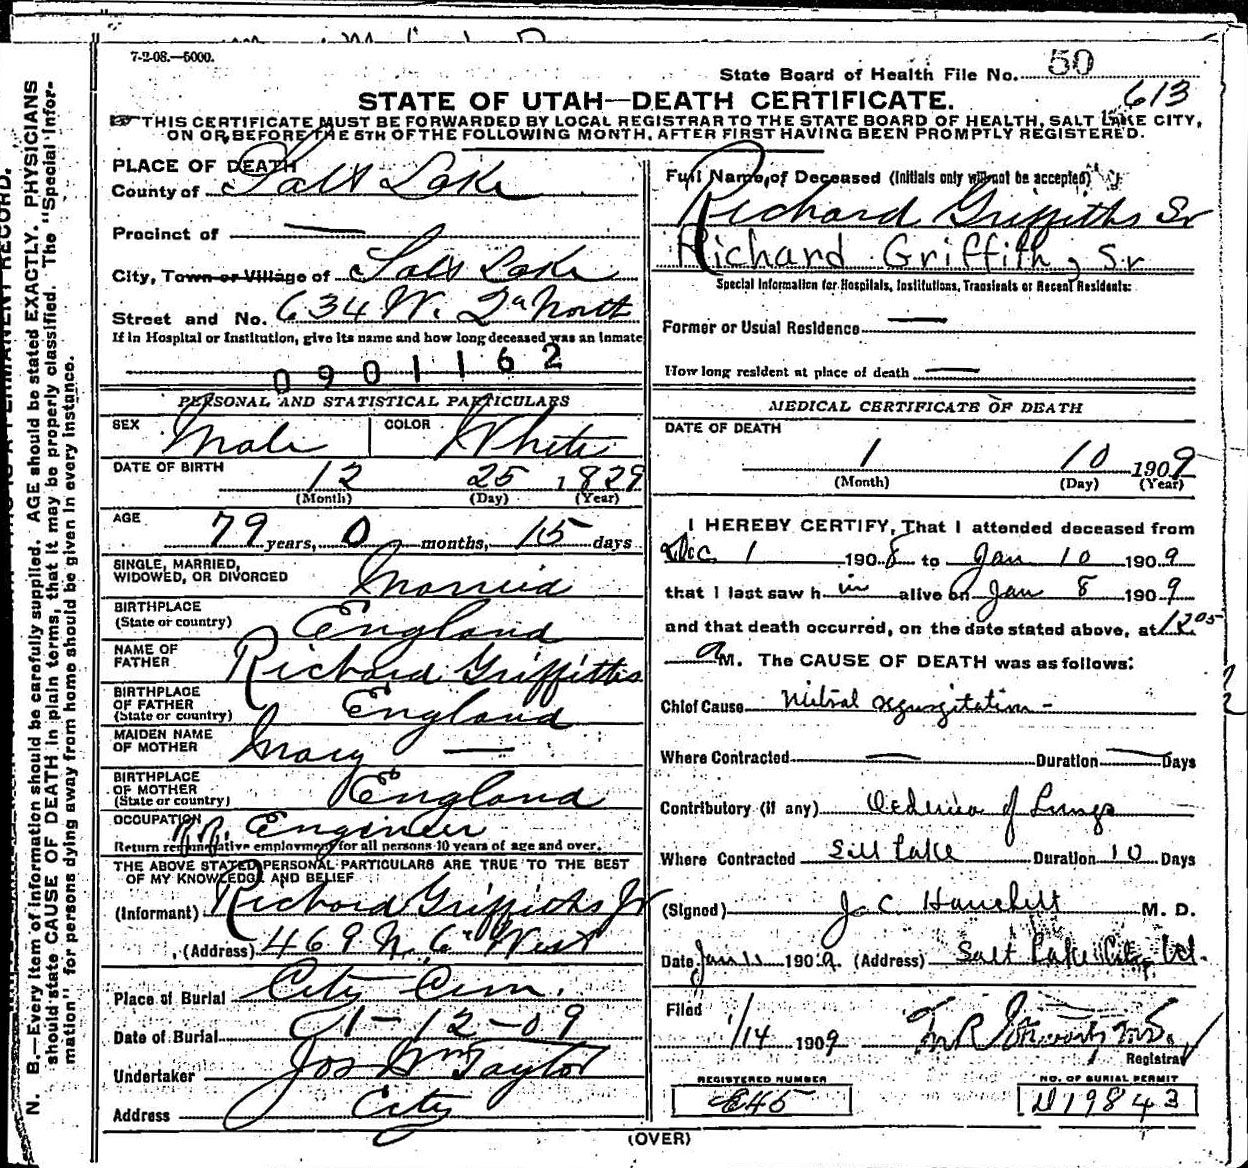 7-2-08.—5000.
State Board of Health File No. 50
613
STATE OF UTAH—DEATH CERTIFICATE.
THIS CERTIFICATE MUST BE FORWARDED BY LOCAL REGISTRAR TO THE STATE BOARD OF HEALTH, SALT LAKE CITY,
ON OR BEFORE THE 5TH OF THE FOLLOWING MONTH, AFTER FIRST HAVING BEEN PROMPTLY REGISTERED.
N. B.—Every item of information should be carefully supplied. AGE should be stated EXACTLY. PHYSICIANS
should state CAUSE OF DEATH in plain terms, that it may be properly classified. The "Special Infor-
mation" for persons dying away from home should be given in every instance.
PLACE OF DEATH
County of Salt Lake
Precinct of —
City, Town or Village of Salt Lake
Street and No. 634 W. 2nd North
If in Hospital or Institution, give its name and how long deceased was an inmate
0901162
PERSONAL AND STATISTICAL PARTICULARS
SEX Male COLOR White
DATE OF BIRTH 12 25 1829
(Month) (Day) (Year)
AGE 79 years, 0 months, 15 days
SINGLE, MARRIED,
WIDOWED, OR DIVORCED Married
BIRTHPLACE
(State or country) England
NAME OF
FATHER Richard Griffiths
BIRTHPLACE
OF FATHER
(State or country) England
MAIDEN NAME
OF MOTHER Mary —
BIRTHPLACE
OF MOTHER
(State or country) England
OCCUPATION Engineer
Return remunerative employment for all persons 10 years of age and over.
THE ABOVE STATED PERSONAL PARTICULARS ARE TRUE TO THE BEST
OF MY KNOWLEDGE AND BELIEF
(Informant) Richard Griffiths Jr
(Address) 469 N. 6th West
Place of Burial City Cem.
Date of Burial 1-12-09
Undertaker Jos Wm Taylor
Address City
Full Name of Deceased (Initials only will not be accepted)
Richard Griffiths Sr
Richard Griffith, Sr
Special Information for Hospitals, Institutions, Transients or Recent Residents:
Former or Usual Residence —
How long resident at place of death —
MEDICAL CERTIFICATE OF DEATH
DATE OF DEATH
1 10 1909
(Month) (Day) (Year)
I HEREBY CERTIFY, That I attended deceased from
Dec 1 1908 to Jan 10 1909
that I last saw him alive on Jan 8 1909
and that death occurred, on the date stated above, at 12 05
a M. The CAUSE OF DEATH was as follows:
Chief Cause Mitral regurgitation -
Where Contracted — Duration — Days
Contributory (if any) Oedema of Lungs
Where Contracted Salt Lake Duration 10 Days
(Signed) J. C. M. D.
Date Jan 11 1909. (Address) Salt Lake City Ut.
Filed
1/14 1909
Registrar
REGISTERED NUMBER
E45
NO. OF BURIAL PERMIT
D19843
(OVER)